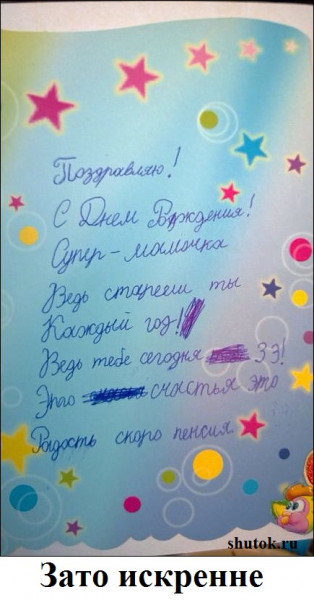 Поздравляю!
С Днем Рождения!
Супер-мамочка
Ведь старееш ты
Каждый год!
Ведь тебе сегодня 33!
Это счастья это
Радость скоро пенсия
shutok.ru
Зато искренне